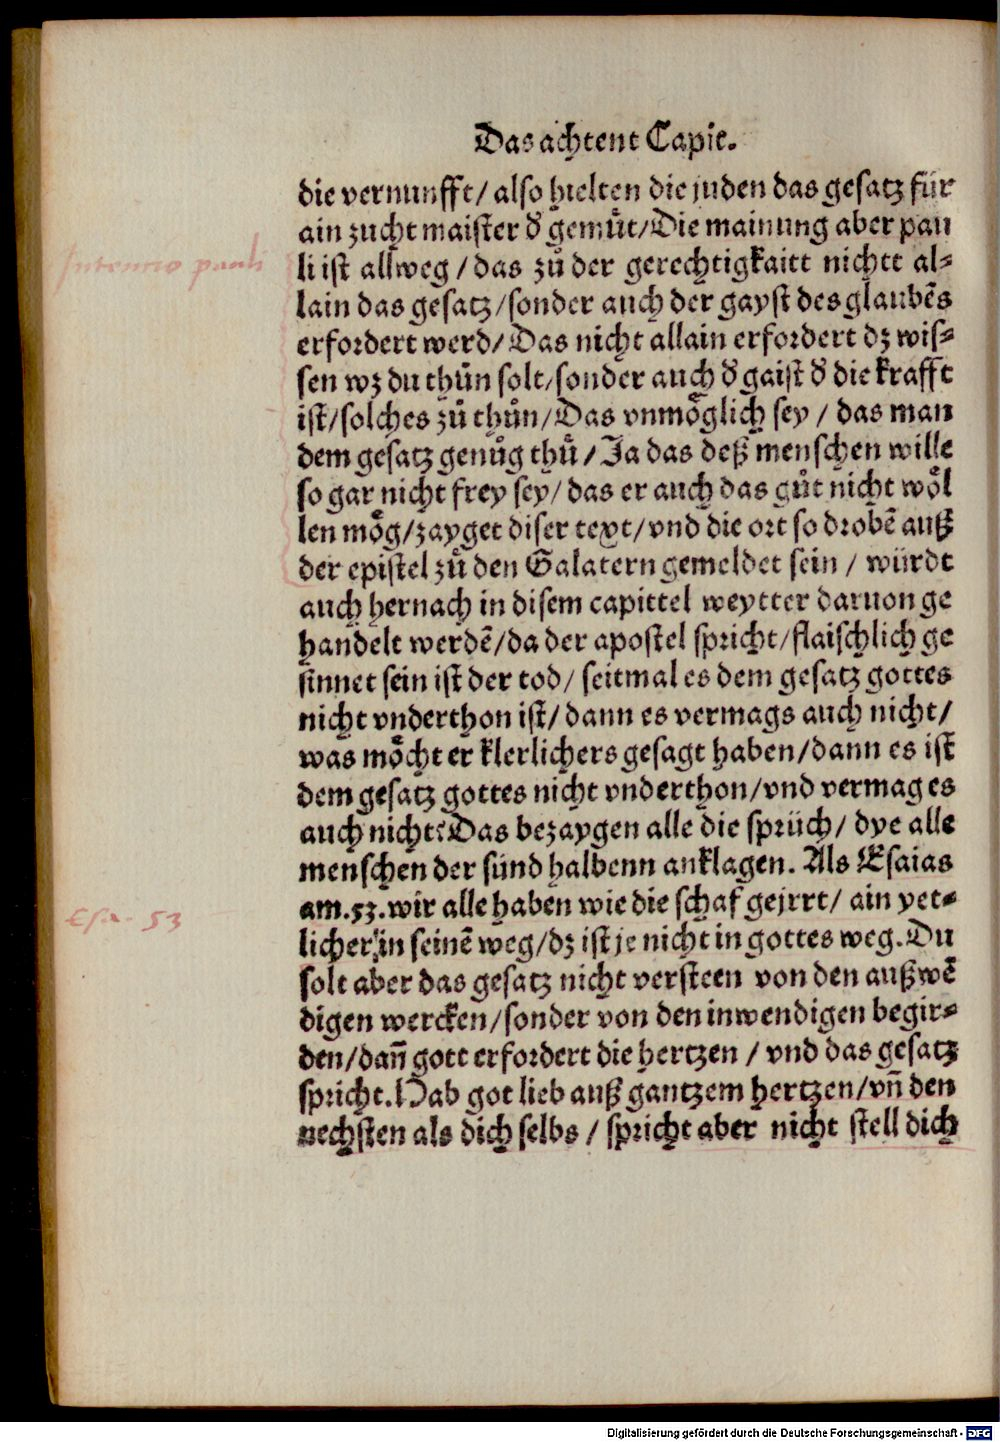 Das achtent Capit.
die vernunfft/ also hielten die juden das gesatz für
ain zucht maister đ gemuͤt/Die mainung aber pau
li ist allweg / das zuͦ der gerechtigkaitt nichtt al⸗
lain das gesatz/sonder auch der gayst des glaubēs
erfordert werd/ Das nicht allain erfordert dz wis⸗
sen wz du thuͦn solt/sonder auch đ gaist đ die krafft
ist/solches zuͦ thuͦn/Das vnmoͤglich sey / das man
dem gesatz genuͦg thuͦ / Ja das deß menschen wille
so gar nicht frey sey/ das er auch das guͦt nicht woͤl
len moͤg/zayget diser text/vnd die ort so drobē auß
der epistel zuͦ den Galatern gemeldet sein / würdt
auch hernach in disem capittel weytter daruon ge
handelt werdē/da der apostel spricht/flaischlich ge
sinnet sein ist der tod/ seitmal es dem gesatz gottes
nicht vnderthon ist/ dann es vermags auch nicht/
was moͤcht er klerlichers gesagt haben/dann es ist
dem gesatz gottes nicht vnderthon/vnd vermag es
auch nicht? Das bezaygen alle die sprüch/ dye alle
menschen der sünd halbenn anklagen. Als Esaias
am.53.wir alle haben wie die schaf gejrrt/ ain yet⸗
licher in seinē weg/dz ist je nicht in gottes weg. Du
solt aber das gesatz nicht versteen von den außwē
digen wercken/sonder von den inwendigen begir⸗
den/dañ gott erfordert die hertzen / vnd das gesatz
spricht. Hab got lieb auß gantzem hertzen/vñ den
nechsten als dich selbs / spricht aber nicht stell dich
Intencio pauli
Esa. 53
Digitalisierung gefördert durch die Deutsche Forschungsgemeinschaft - DFG